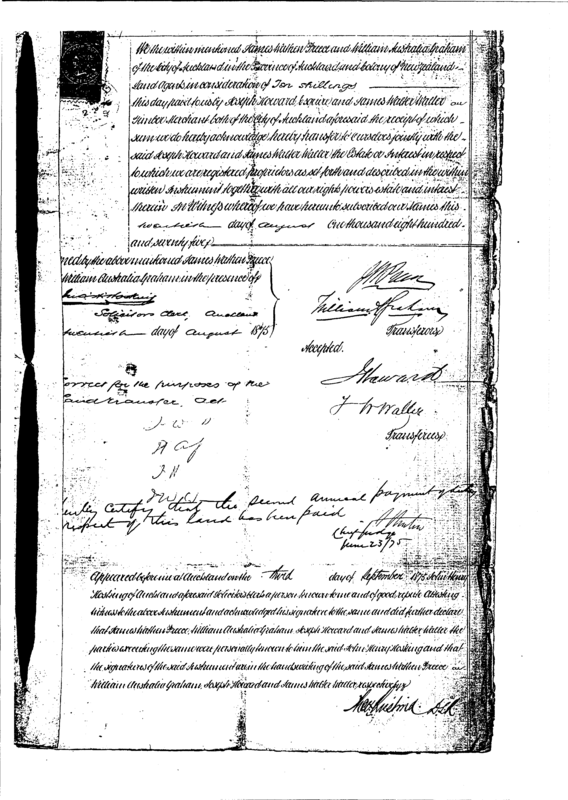 We the within mentioned James Wathen Preece and William Australia Graham
of the City of Auckland in the Province of Auckland and Colony of New Zealand
Land Agents in consideration of Ten shillings
this day paid to us by Joseph Howard Esquire and James Walter Waller
Timber Merchant both of the City of Auckland aforesaid the receipt of which
sum we do hereby acknowledge hereby transfer to ourselves jointly with the
said Joseph Howard and James Walter Waller the Estate or Interest in respect
to which we are registered proprietors as set forth and described in the within
written Instrument together with all our rights powers estate and interest
therein In Witness whereof we have hereunto subscribed our Names this
twentieth day of August One thousand eight hundred
and seventy five
ned by the above mentioned James Wathen Preece
William Australia Graham in the presence of
Solicitors clerk, Auckland
twentieth day of August 1875
William A Graham
Transferors
Accepted.
J Howard
J W Waller
Transferees
Correct for the purposes of the
Land Transfer Act
J W
J H
certify that the second annual payment of duty
respect of this land has been paid
Chief Judge
June 23/75
Appeared before me at Auckland on the third day of September 1875 John Henry
Hosking of Auckland aforesaid Solicitors Clerk a person known to me and of good repute Attesting
witness to the above Instrument and acknowledged his signature to the same and did further declare
that James Wathen Preece, William Australia Graham Joseph Howard and James Walter Waller the
parties executing the same were personally known to him the said John Henry Hosking and that
the signatures of the said Instrument are in the handwriting of the said James Wathen Preece
William Australia Graham, Joseph Howard and James Walter Waller, respectively